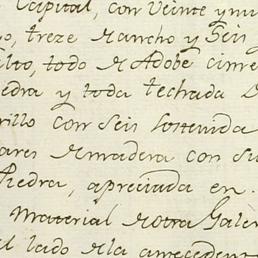 Capital, con Veinte y nu
treze de ancho y Seis
alto, todo de Adobe cimie
edra y toda techada D
rillo con Seis sostenida
ares de madera con su
Piedra, apreciada en.
Material de otra Galer
al lado de la antecedent